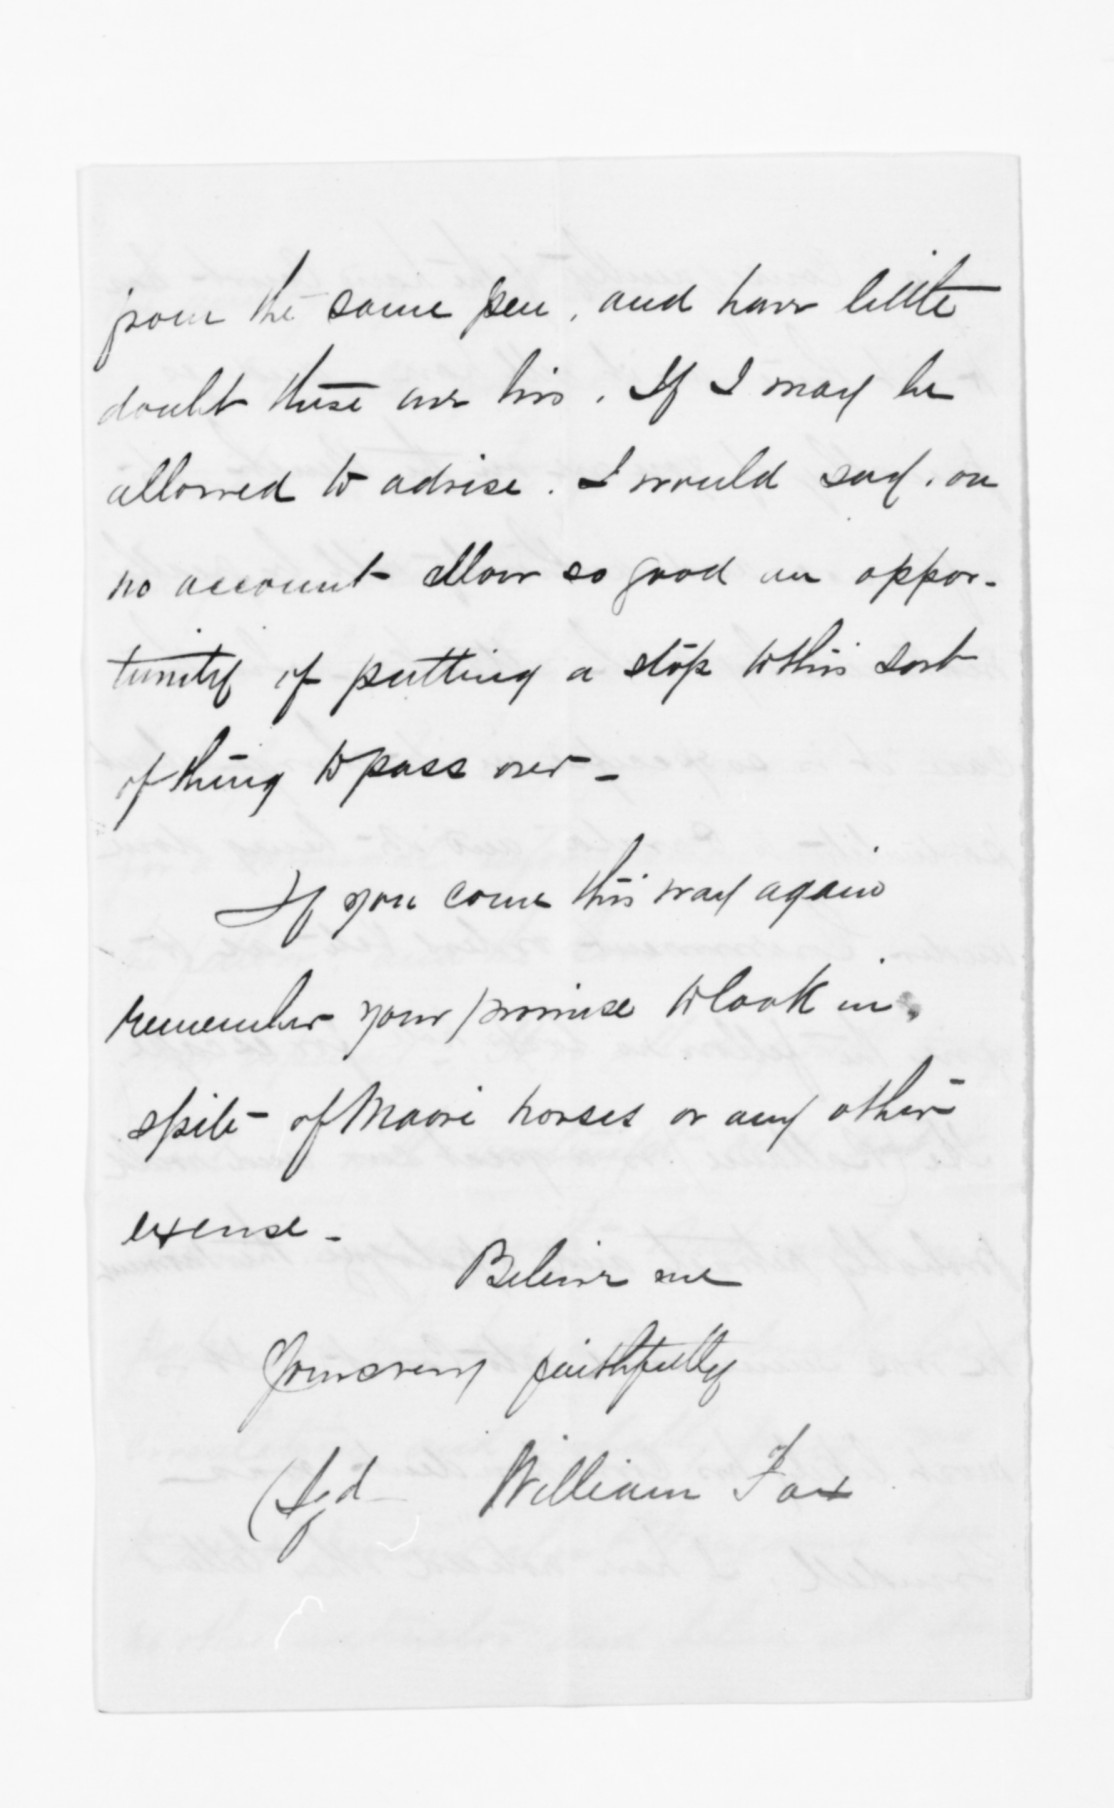 from the same pen, and have little
doubt these are his. If I may be
allowed to advise. I would say, on
no account allow so good an oppor-
tunity of putting a stop to this sort
of thing to pass over -
If you come this way again
remember your promise to look in,
spite of Maori horses or any other
excuse -
Believe me
Yours very faithfully
(Sgd William Fox